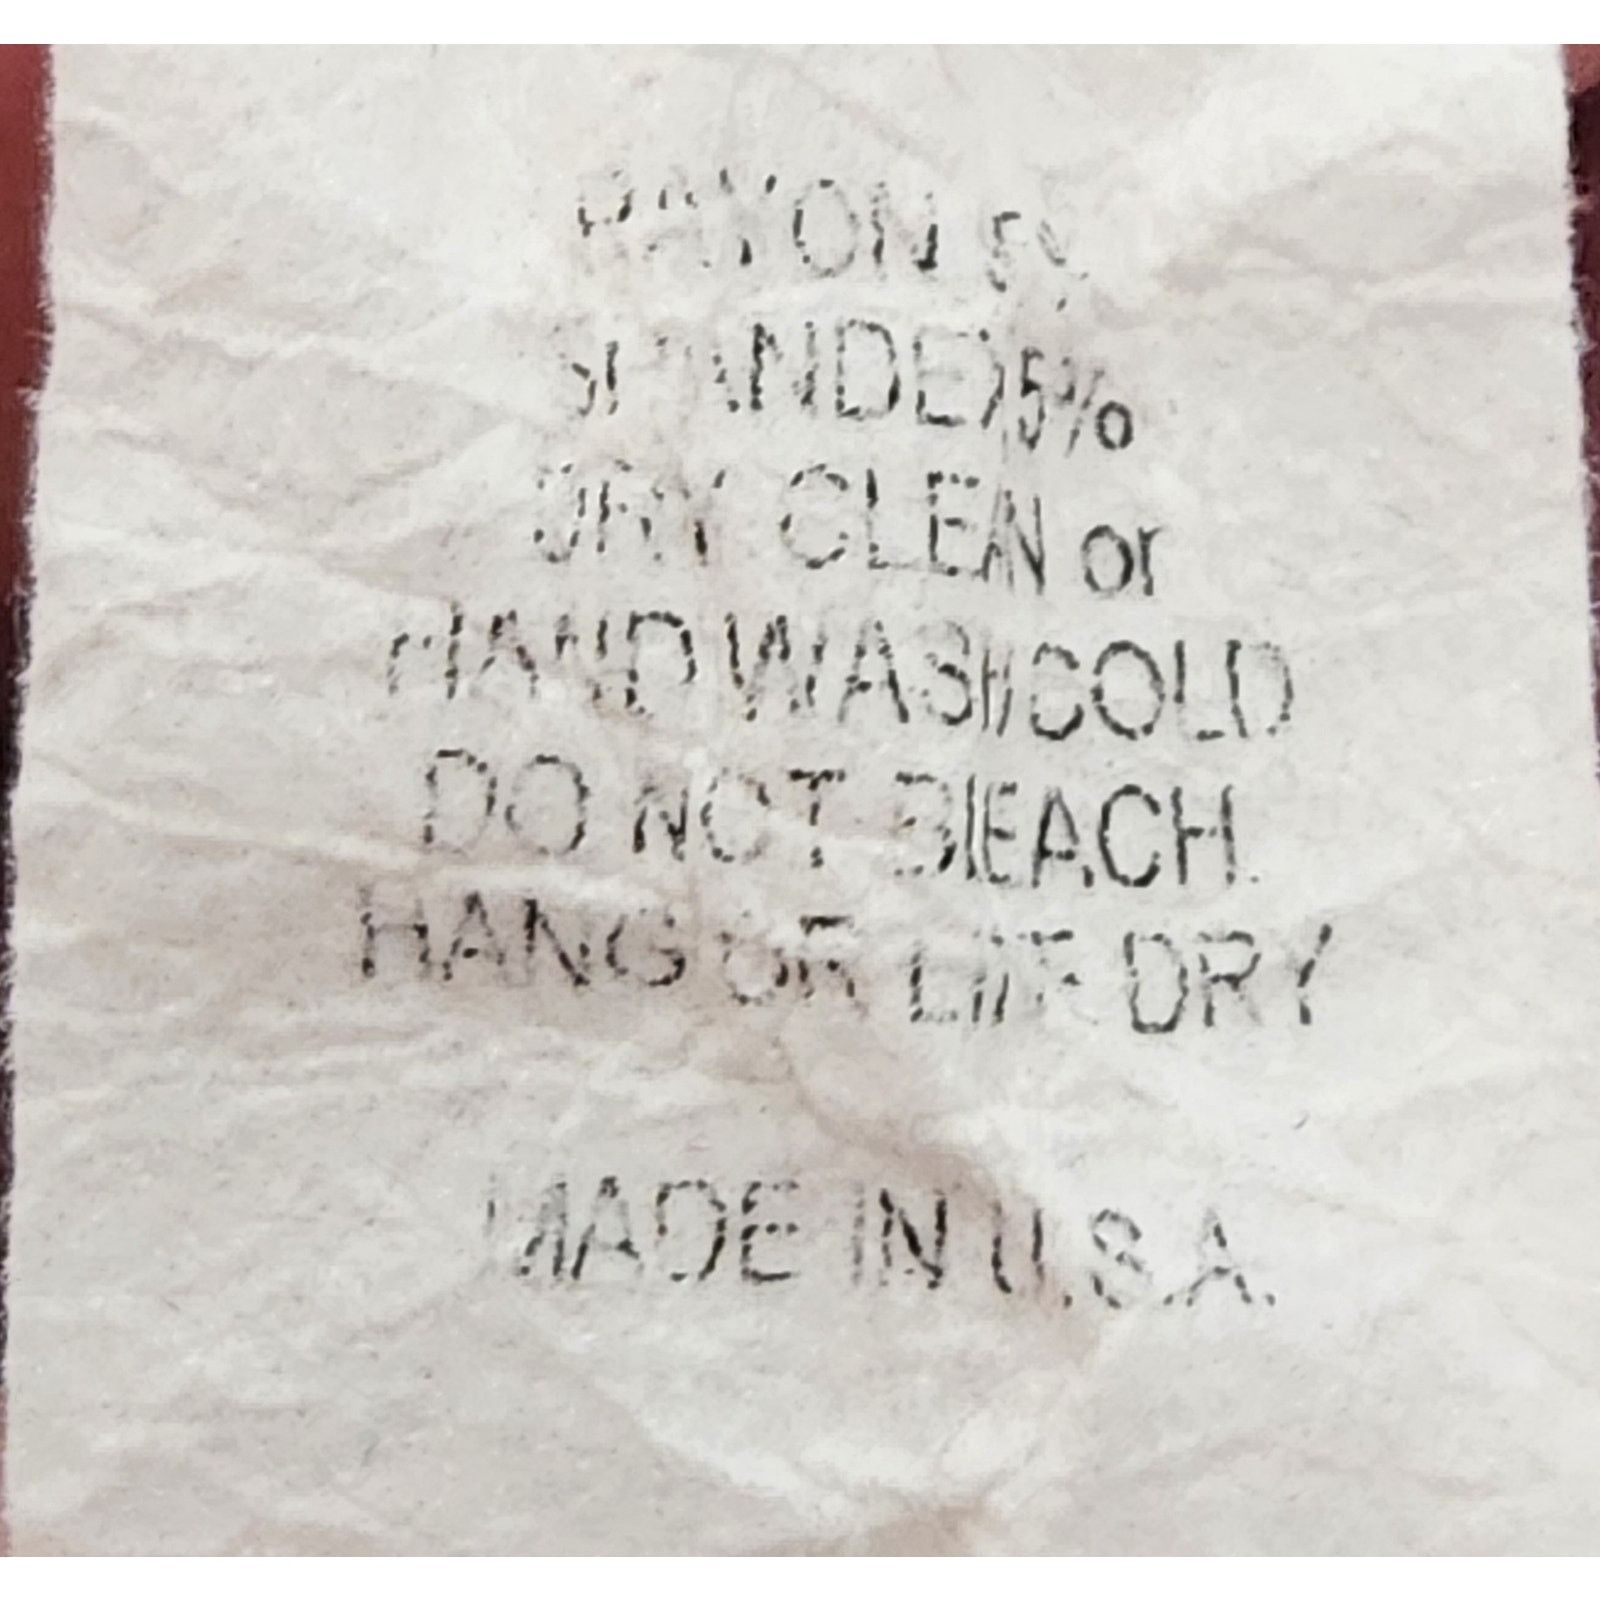 RAYON
SPANDEX 5%
DRY CLEAN or
HAND WASH COLD
DO NOT BLEACH.
HANG OR LINE DRY
MADE IN U.S.A.